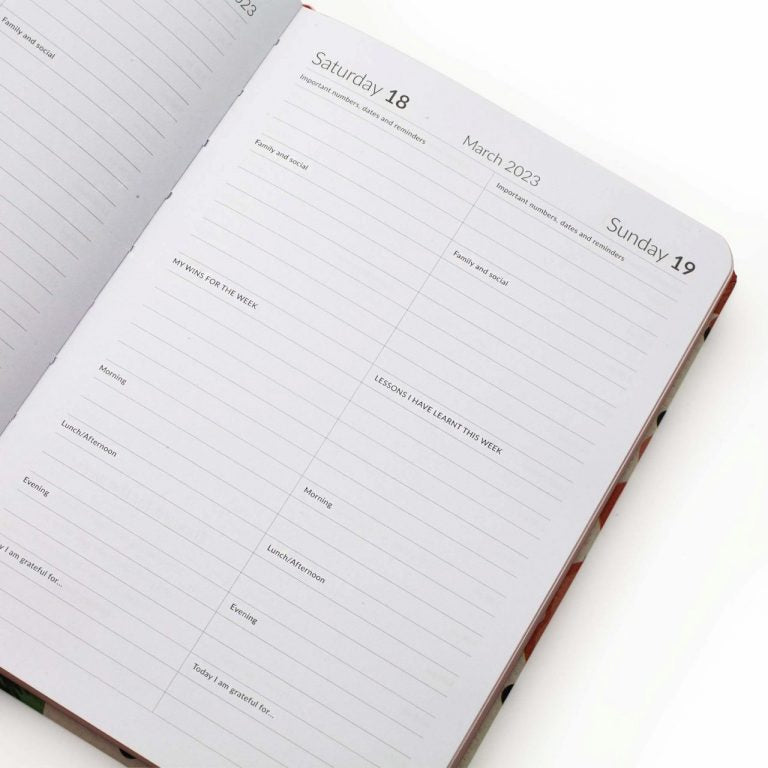 23
Family and social
Saturday 18
Important numbers, dates and reminders
Family and social
MY WINS FOR THE WEEK
Morning
Lunch/Afternoon
Evening
I am grateful for...
March 2023
Sunday 19
Important numbers, dates and reminders
Family and social
LESSONS I HAVE LEARNT THIS WEEK
Morning
Lunch/Afternoon
Evening
Today I am grateful for...